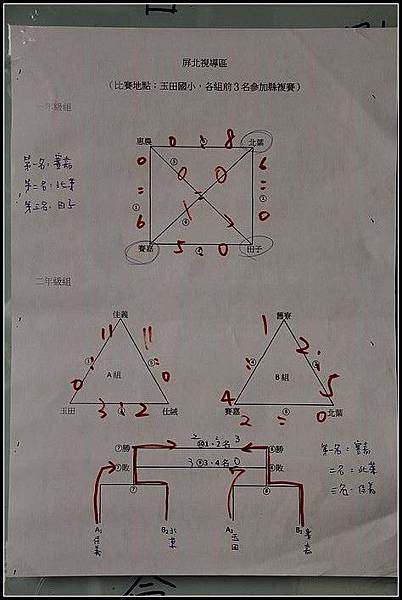 屏北視導區
(比賽地點：玉田國小，各組前3名參加縣複賽)
一年級組
惠農 0 : 8 北葉
第一名：賽嘉
第二名：北葉
第三名：田子
0 = 6
0 0
6 = 0
賽嘉 5 : 0 田子
二年級組
佳義
11 11
A組
0 0
玉田 3 : 2 仕絨
舊寮
1 2
B組
4 5
賽嘉 2 = 0 北葉
⑦勝 2 : 3 ⑧勝
⑩1、2名
⑦敗 3 ⑨3、4名 0 ⑧敗
⑦ ⑧
A₁ B₂ A₂ B₁
佳義 北葉 玉田 賽嘉
第一名：賽嘉
二名：北葉
三名：佳義